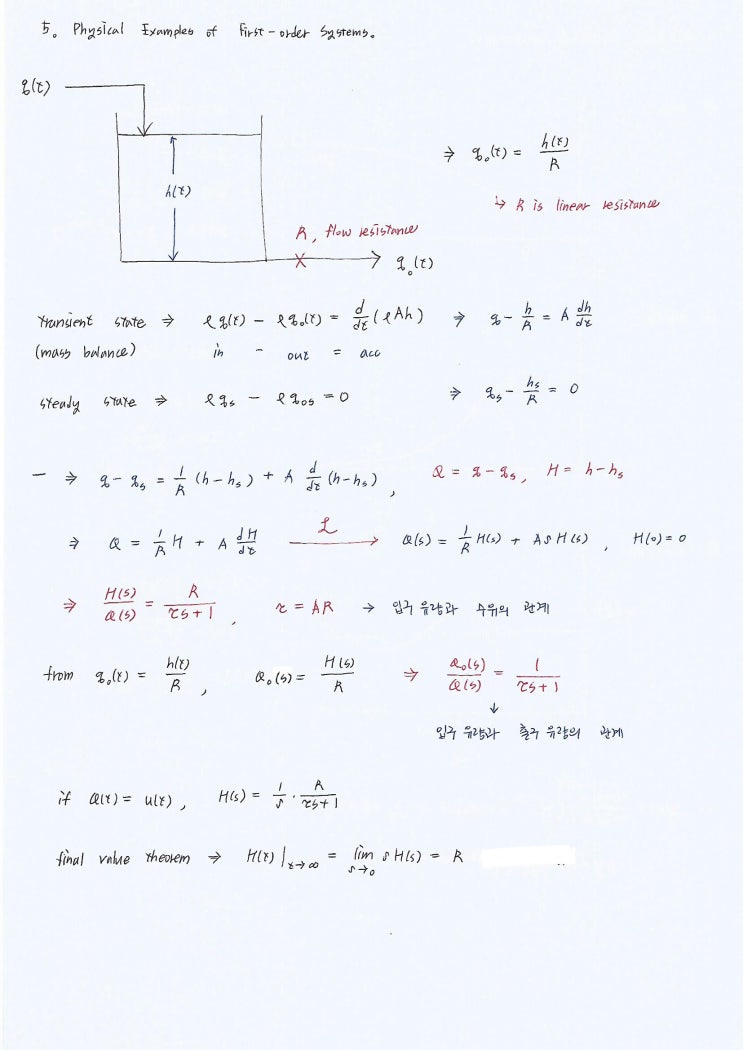 5. Physical Examples of First-order Systems.
q(t)
h(t)
R, flow resistance
q₀(t)
⇒ q₀(t) = h(t)/R
↳ R is linear resistance
transient state ⇒ ρq(t) - ρq₀(t) = d/dt (ρAh) ⇒ q - h/R = A dh/dt
(mass balance) in - out = acc
steady state ⇒ ρqₛ - ρq₀ₛ = 0 ⇒ qₛ - hₛ/R = 0
- ⇒ q - qₛ = 1/R (h - hₛ) + A d/dt (h - hₛ), Q = q - qₛ, H = h - hₛ
⇒ Q = 1/R H + A dH/dt ℒ→ Q(s) = 1/R H(s) + AsH(s), H(0) = 0
⇒ H(s)/Q(s) = R/(τs+1), τ = AR → 입구 유량과 수위의 관계
from q₀(t) = h(t)/R, Q₀(s) = H(s)/R ⇒ Q₀(s)/Q(s) = 1/(τs+1)
↓
입구 유량과 출구 유량의 관계
if Q(t) = u(t), H(s) = 1/s · R/(τs+1)
final value theorem ⇒ H(t)|t→∞ = lim s→0 sH(s) = R